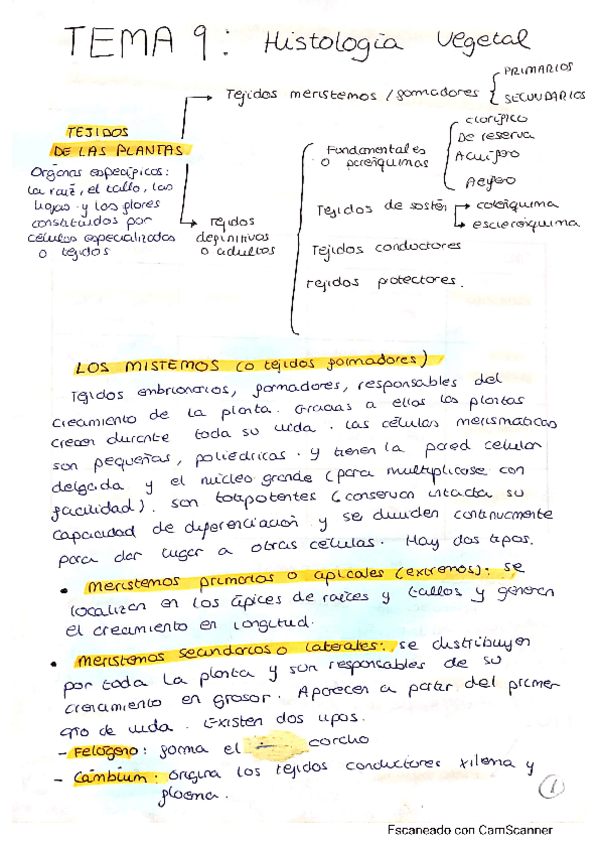 TEMA 9: Histología Vegetal
TEJIDOS
DE LAS PLANTAS
Órganos específicos:
la raíz, el tallo, las
hojas y las flores
constituidos por
células especializadas
o tejidos
Tejidos meristemos / formadores
PRIMARIOS
SECUNDARIOS
Tejidos
definitivos
o adultos
Fundamentales
o parénquimas
clorofílico
De reserva
Acuífero
Aerífero
Tejidos de sostén
colénquima
esclerénquima
Tejidos conductores
Tejidos protectores.
LOS MISTEMOS (o tejidos formadores)
Tejidos embrionarios, formadores, responsables del
crecimiento de la planta. Gracias a ellos las plantas
crecen durante toda su vida. Las células merismáticas
son pequeñas, poliédricas y tienen la pared celular
delgada y el núcleo grande (para multiplicarse con
facilidad). Son totipotentes (conservan intacta su
capacidad de diferenciación y se dividen continuamente
para dar lugar a otras células. Hay dos tipos.
• Meristemos primarios o apicales (extremos): se
localizan en los ápices de raíces y tallos y generan
el crecimiento en longitud.
• Meristemos secundarios o laterales: se distribuyen
por toda la planta y son responsables de su
crecimiento en grosor. Aparecen a partir del primer
año de vida. Existen dos tipos.
- Felógeno: forma el corcho
- Cámbium: origina los tejidos conductores xilema y
floema.
1
Escaneado con CamScanner